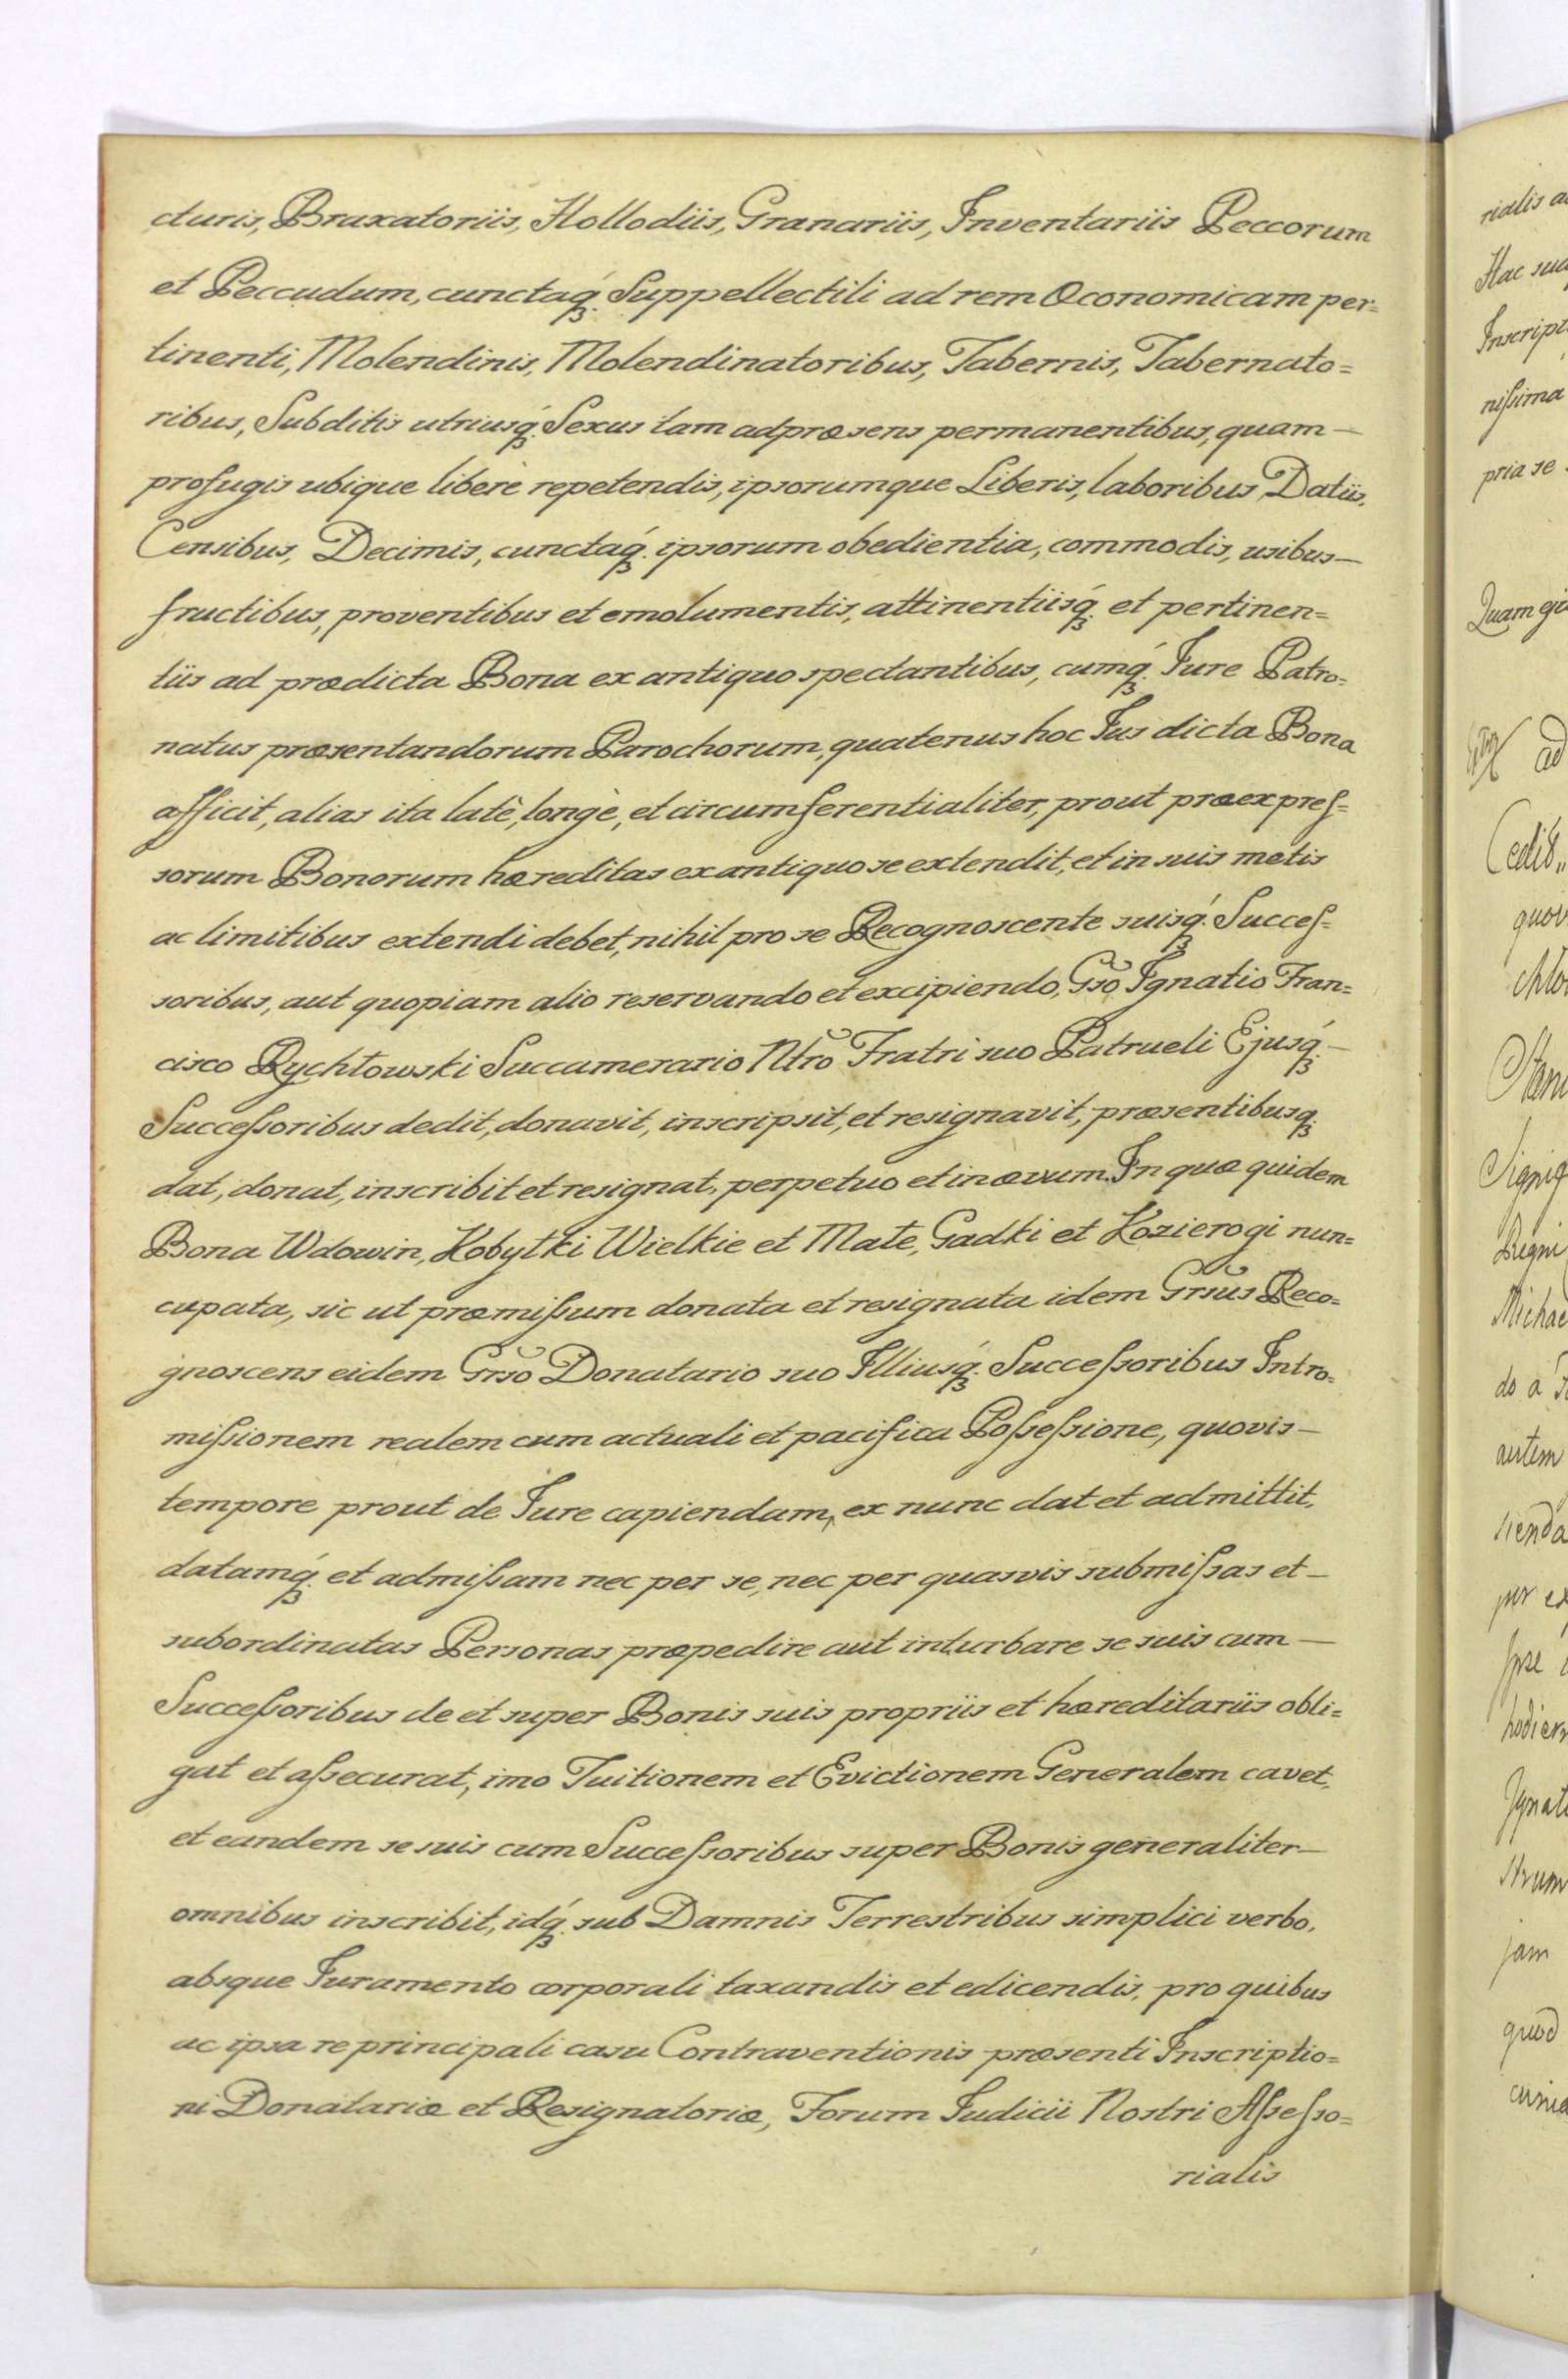 cturis, Braxatoriis, Hollodiis, Granariis, Inventariis Peccorum
et Peccudum, cunctaq́ꝫ. Suppellectili ad rem Oconomicam per=
tinenti, Molendinis, Molendinatoribus, Tabernis, Tabernato=
ribus, Subditis utriusq́ꝫ. Sexus tam adpræsens permanentibus, quam—
profugis ubique liberè repetendis, ipsorumque Liberis, laboribus, Datiis,
Censibus, Decimis, cunctaq́ꝫ. ipsorum obedientia, commodis, usibus—
fructibus, proventibus et emolumentis, attinentiisq́ꝫ. et pertinen=
tiis ad prædicta Bona ex antiquo spectantibus, cumq́ꝫ. Jure Patro=
natus præsentandorum Parochorum, quatenus hoc Jus dicta Bona
afficit, alias ita latè, longè, et circumferentialiter, prout præexpreſ=
sorum Bonorum hæreditas ex antiquo se extendit, et in suis metis
ac limitibus extendi debet, nihil pro se Recognoscente suisq́ꝫ. Succeſ=
soribus, aut quopiam alio reservando et excipiendo, Gso Ignatio Fran=
cisco Rychłowski Succamerario Ntro Fratri suo Patrueli Ejusq́ꝫ.—
Succeſsoribus dedit, donavit, inscripsit, et resignavit, præsentibusqꝫ.
dat, donat, inscribit et resignat, perpetuo et in ævum. In quæ quidem
Bona Wdowin, Kobyłki Wielkie et Małe, Gadki et Kozierogi nun=
cupata, sic ut præmiſsum donata et resignata idem Grsus Reco=
gnoscens eidem Grso Donatario suo Illiusq́ꝫ. Succeſsoribus Intro=
miſsionem realem cum actuali et pacifica Poſseſsione, quovis—
tempore prout de Jure capiendam, ex nunc dat et admittit,
datamq́ꝫ. et admiſsam nec per se, nec per quasvis submiſsas et—
subordinatas Personas præpedire aut inturbare se suis cum—
Succeſsoribus de et super Bonis suis propriis et hæreditariis obli=
gat et aſsecurat, imo Tuitionem et Evictionem Generalem cavet,
et eandem se suis cum Succeſsoribus super Bonis generaliter—
omnibus inscribit, idq́ꝫ. sub Damnis Terrestribus simplici verbo,
absque Juramento corporali taxandis et edicendis, pro quibus
ac ipsa re principali casu Contraventionis præsenti Inscriptio=
ni Donatariæ et Resignatoriæ, Forum Judicii Nostri Aſseſso=
rialis
rialis
Hac
Inscript
niſsima
pria se
Quam
ad
quov
Regni
Michae
do a
autem
per ex
Ignat
jam
quod